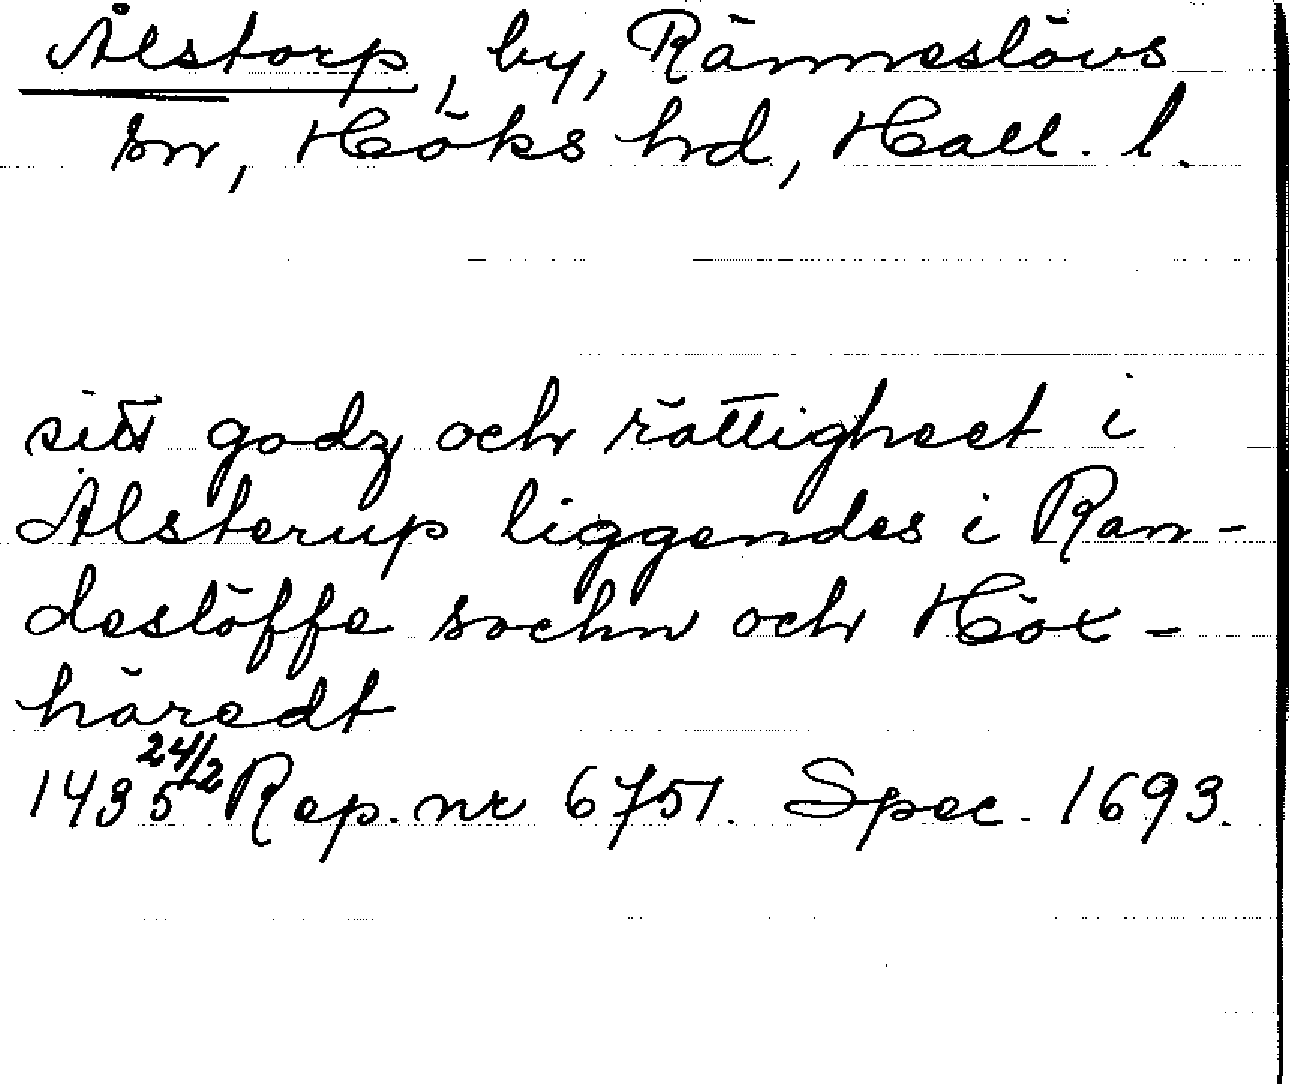 Ålstorp, by, Ränneslövs
sn, Höks hd, Hall. l.
sitt godz och rättigheet i
Alsterup liggendes i Ran-
deslöffe sochn och Höx-
häredt
1435 24/2 Rep. nr 6751. Spec. 1693.